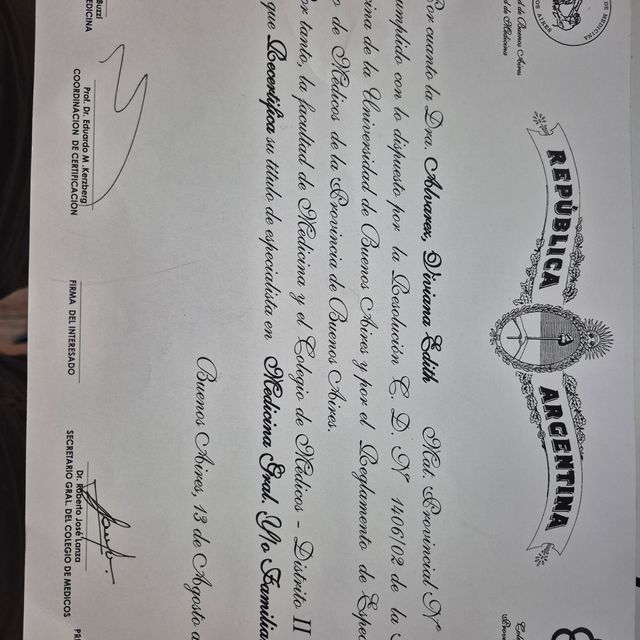 DE MEDICINA
OS AIRES
d de Buenos Aires
d de Medicina
REPÚBLICA ARGENTINA
Por cuanto la Dra. Alvarez, Viviana Edith Mat. Provincial N°
umplido con lo dispuesto por la Resolución C. D. N° 1406/02 de la
ina de la Universidad de Buenos Aires y por el Reglamento de Espec
o de Médicos de la Provincia de Buenos Aires.
or tanto, la facultad de Medicina y el Colegio de Médicos - Distrito II
que Recertifica su título de especialista en Medicina Gral. Y/o Familia
Buenos Aires, 13 de Agosto
Buzzi
MEDICINA
Prof. Dr. Eduardo M. Kerzberg
COORDINACION DE CERTIFICACION
FIRMA DEL INTERESADO
Dr. Roberto José Lanza
SECRETARIO GRAL. DEL COLEGIO DE MEDICOS